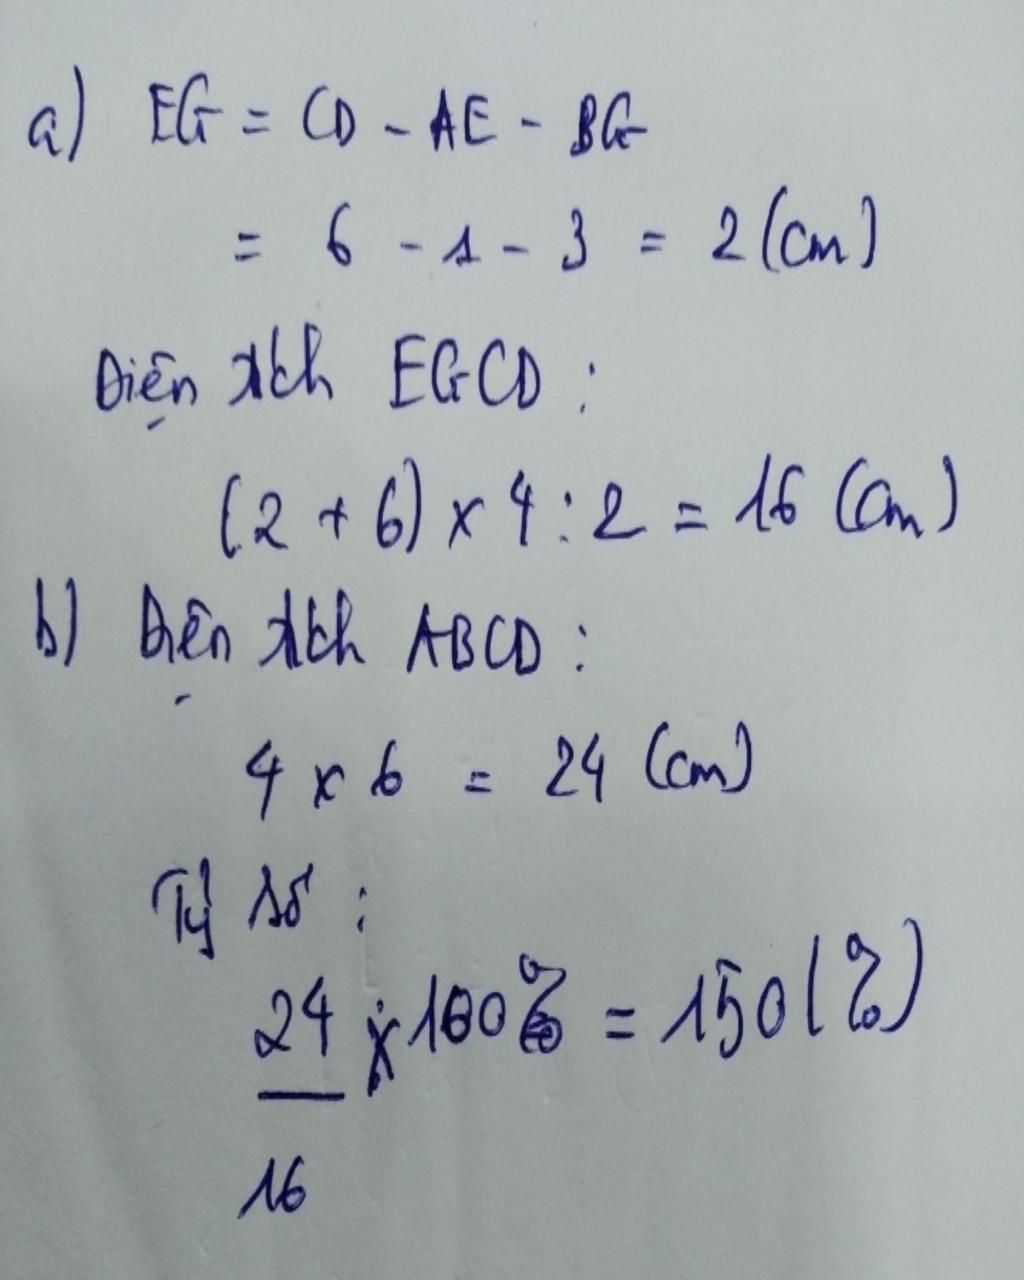 a) EG = CD - AE - BG
= 6 - 1 - 3 = 2 (cm)
Diện tích EGCD :
(2 + 6) x 4 : 2 = 16 (cm)
b) Diện tích ABCD :
4 x 6 = 24 (cm)
Tỷ số :
24/16 x 100% = 150 (%)